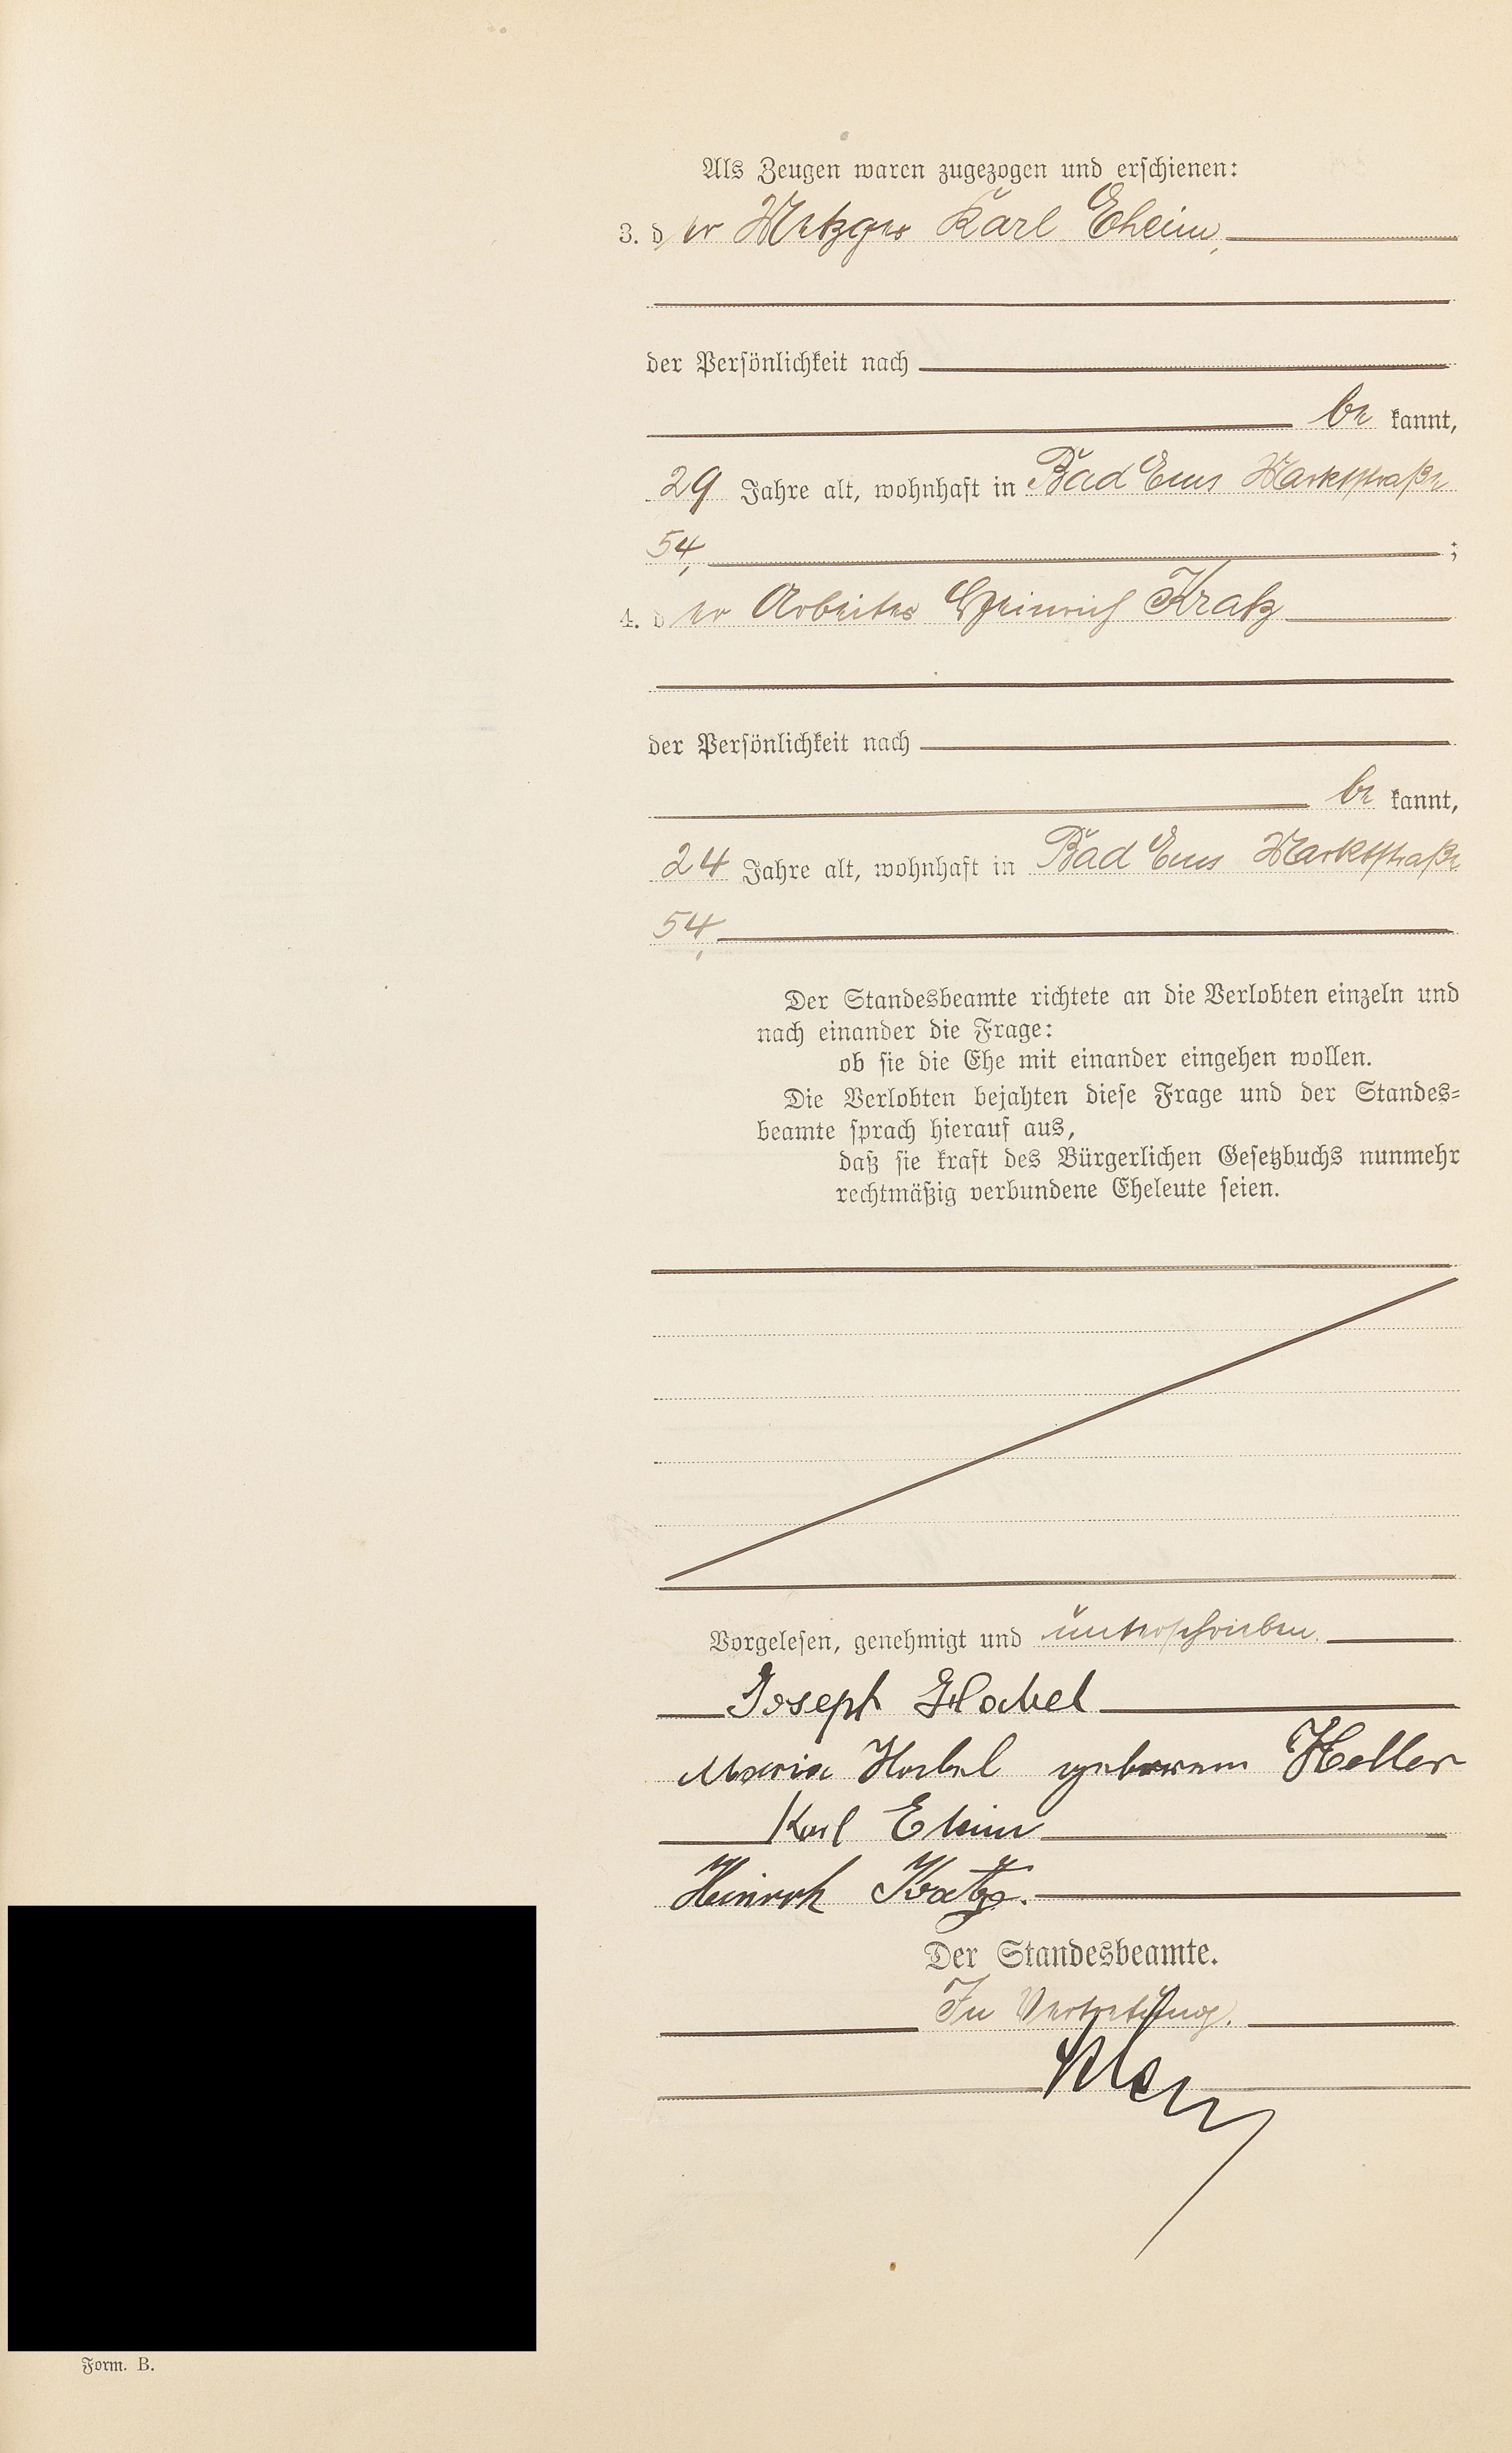 Als Zeugen waren zugezogen und erschienen:
3. der Metzger Karl Eheim,
der Persönlichkeit nach
be kannt,
29 Jahre alt, wohnhaft in Bad Ems Marktstraße
54, ;
4. der Arbeiter Heinrich Kratz
der Persönlichkeit nach
be kannt,
24 Jahre alt, wohnhaft in Bad Ems Marktstraße
54,
Der Standesbeamte richtete an die Verlobten einzeln und
nach einander die Frage:
ob sie die Ehe mit einander eingehen wollen.
Die Verlobten bejahten diese Frage und der Standes=
beamte sprach hierauf aus,
daß sie kraft des Bürgerlichen Gesetzbuchs nunmehr
rechtmäßig verbundene Eheleute seien.
Vorgelesen, genehmigt und unterschrieben.
Joseph Habel
Maria Habel geborene Heller
Karl Eheim
Heinrich Kratz.
Der Standesbeamte.
In Vertretung.
Form. B.